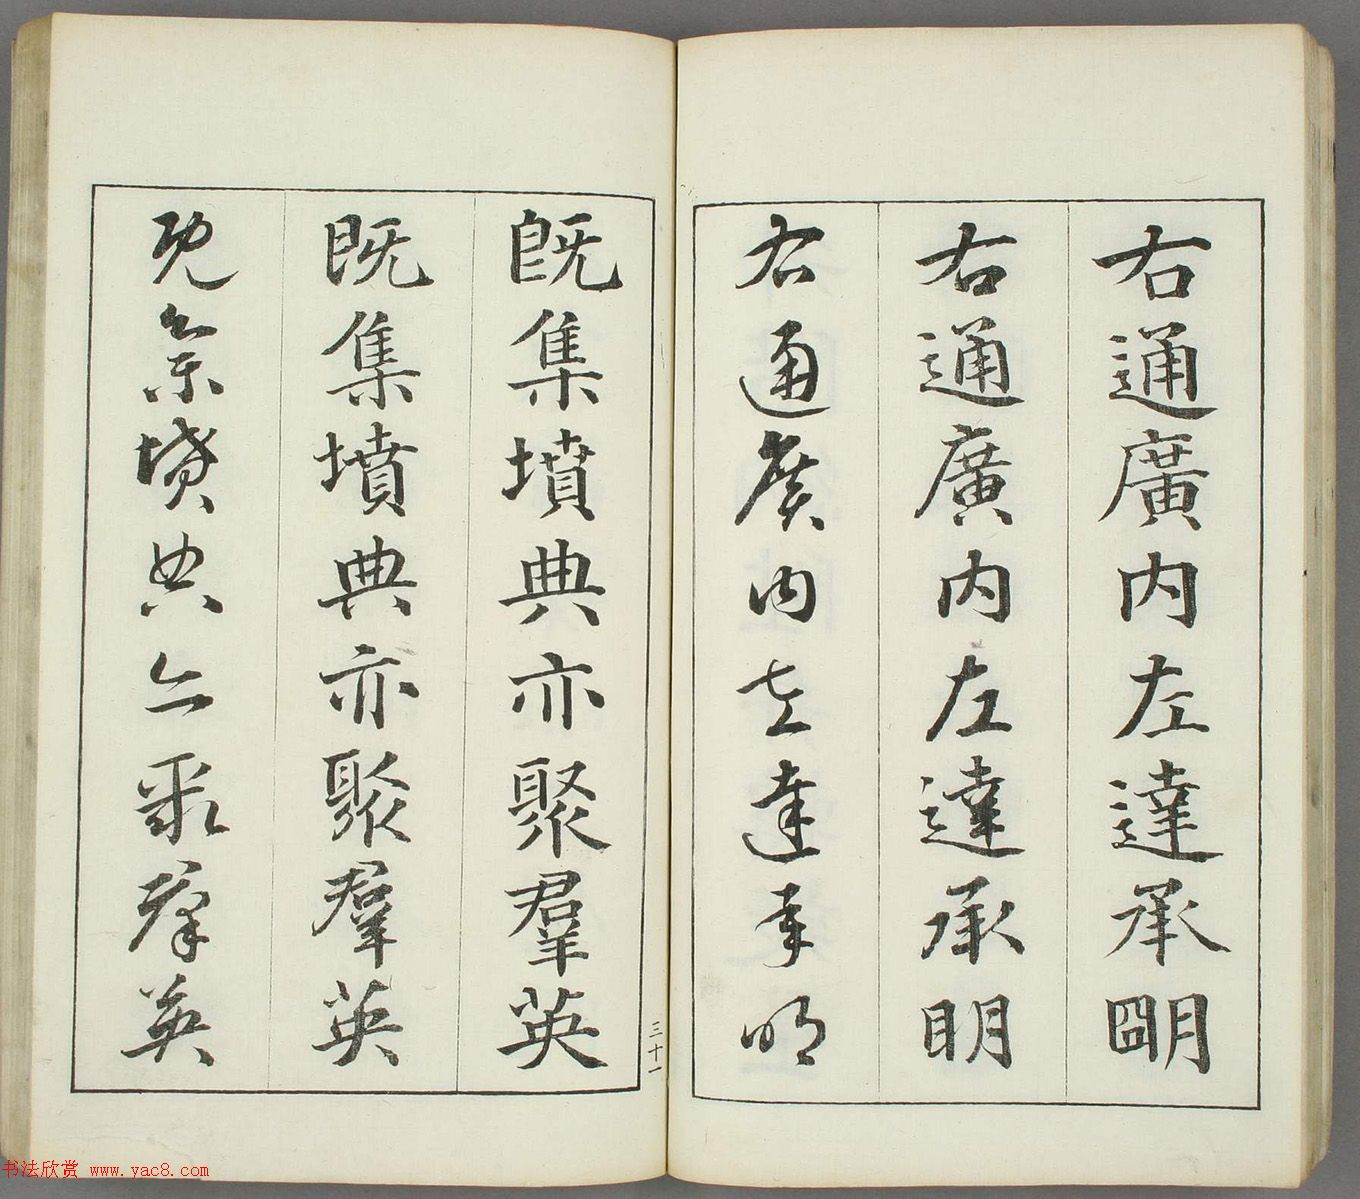 右通廣内左達承朙
右通廣内左達承明
右通廣内左達承明
既集墳典亦聚羣英
既集墳典亦聚羣英
既集墳典亦聚羣英
三十一
书法欣赏 www.yac8.com